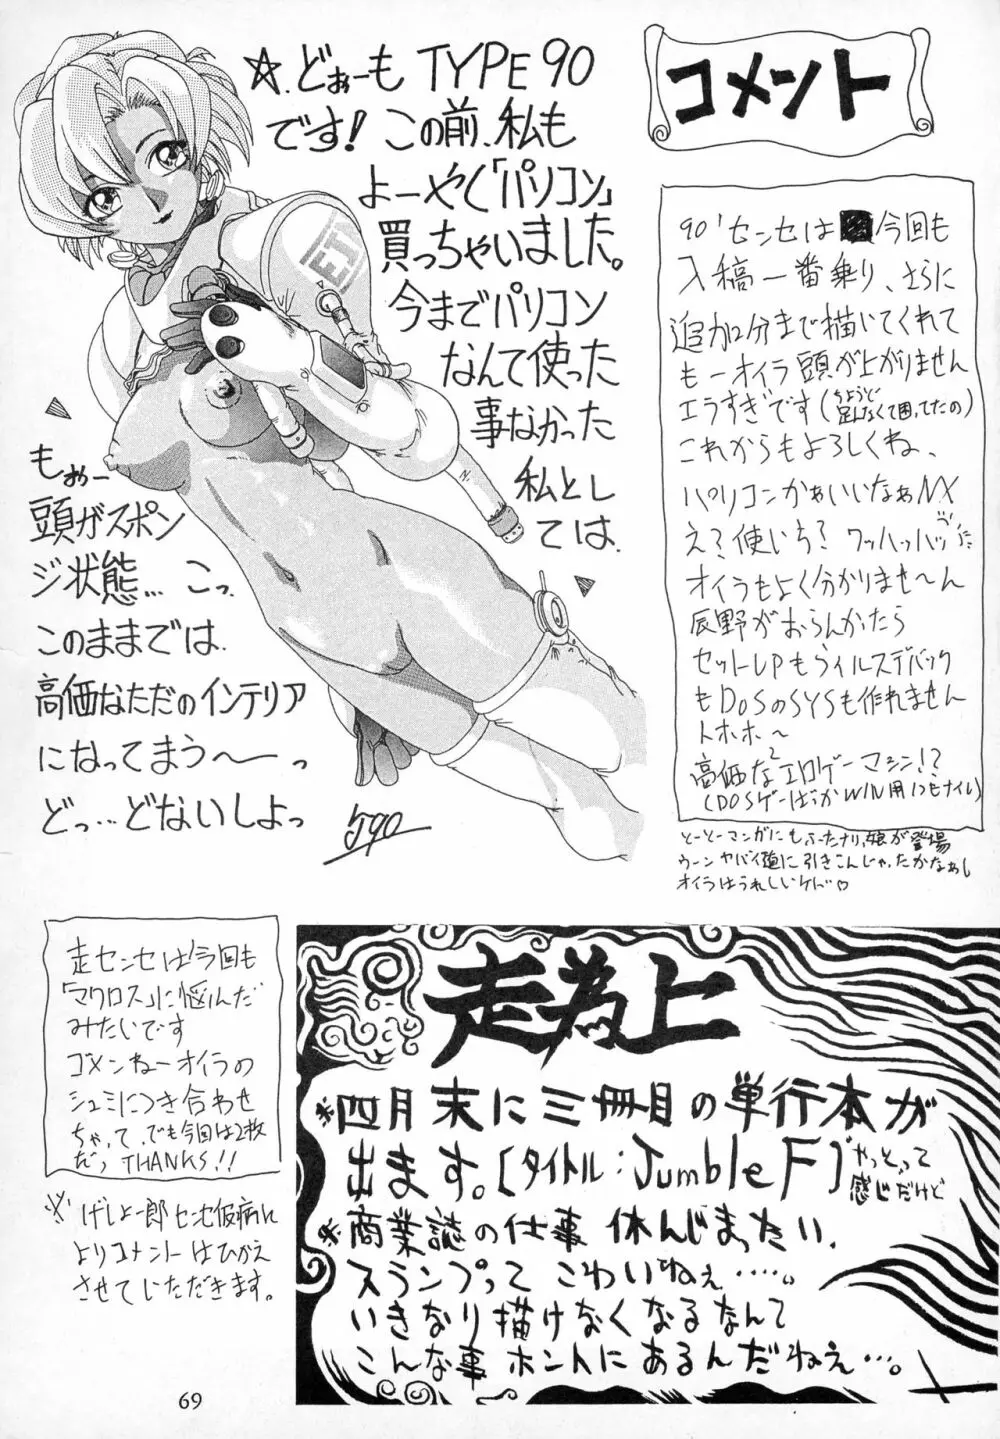 コメント
☆.どぉーも TYPE90
です! この前、私も
よーやく「パソコン」
買っちゃいました。
今までパソコン
なんて使った
事なかった
私とし
ては.
もぉー
頭がスポン
ジ状態… こっ.
このままでは.
高価なただのインテリア
になってまう～ーっ
どっ…どないしよっ
T90
90'センセは 今回も
入稿一番乗り、さらに
追加2分まで描いてくれて
もーオイラ頭が上がりません
エラすぎです(ちょうど
足んなくて困ってたの)
これからもよろしくね、
パソコンかぁいいなぁNX
え?使いち? ワッハッハッ
オイラもよく分かりませ～ん
辰野がおらんかたら
セットUPもうィルスデバック
もDOSのSYSも作れません
トホホ～
高価な2エロゲーマシン!?
(DOSゲーばっかWIN用1つもナイ)
とーとーマンガにもふたナリ娘が登場
ウーンヤバイ道に引きこんじゃったかなぁし
オイラはうれしいケド♡
走センセは今回も
「マクロス」に悩んだ
みたいです
ゴメンねーオイラの
シュミにつき合わせ
ちゃって、でも今回は2枚
だっ THANKS!!
※げしょ一郎センセ仮病に
よりコメントはひかえ
させていただきます。
走為上
※四月末に三冊目の単行本が
出ます。[タイトル:Jumble F]やっとって
感じだけど
※商業誌の仕事 休んじまったい、
スランプって こわいねぇ……。
いきなり描けなくなるなんて
こんな事 ホントにあるんだねぇ…。
69